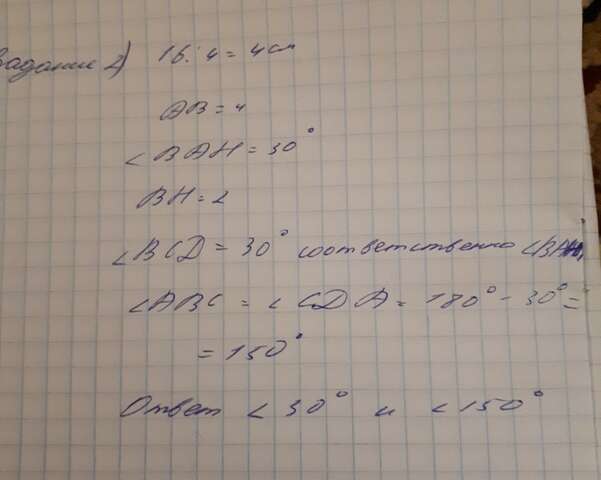 Задание 2) 16:4 = 4 см
AB = 4
∠BAH = 30°
BH = 2
∠BCD = 30° соответственно ∠BAH,
∠ABC = ∠CDA = 180° - 30° =
= 150°
Ответ ∠30° и ∠150°